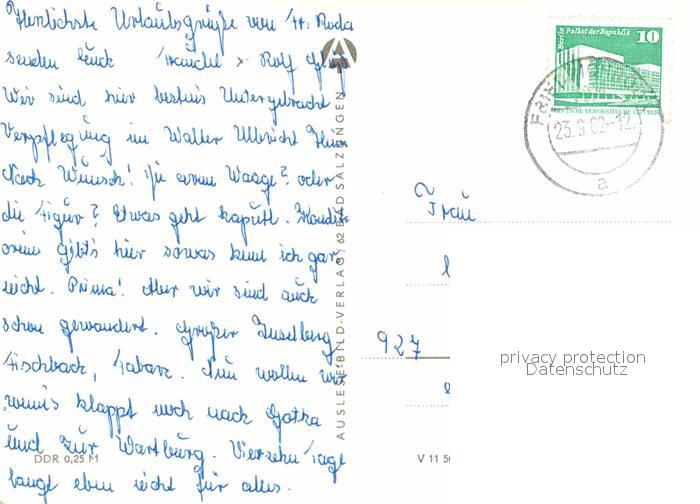 Herrlichste Urlaubsgrüße von Fr. Roda
senden Euch Traudel & Rolf
Wir sind hier bestens Untergebracht
Verpflegung im Walter Ulbricht Heim
Nach Wunsch! Die arme Waage? oder
die Figur? Etwas geht kaputt. Konditi
oreien gibt's hier sowas kenn ich gar
nicht. Prima! Aber wir sind auch
schon gewandert. Großer Inselberg
Fischbach, Tabarz. Nun wollen wir
wenn's klappt noch nach Gotha
und zur Wartburg. Vierzehn Tage
langt eben nicht für alles.
DDR 0,25 M
AUSLESE-BILD-VERLAG/62 BAD SALZUNGEN
V 11 50
Berlin Palast der Republik
10
DEUTSCHE DEMOKRATISCHE REPUBLIK
23.9.82-12
a
Frau
927
privacy protection
Datenschutz